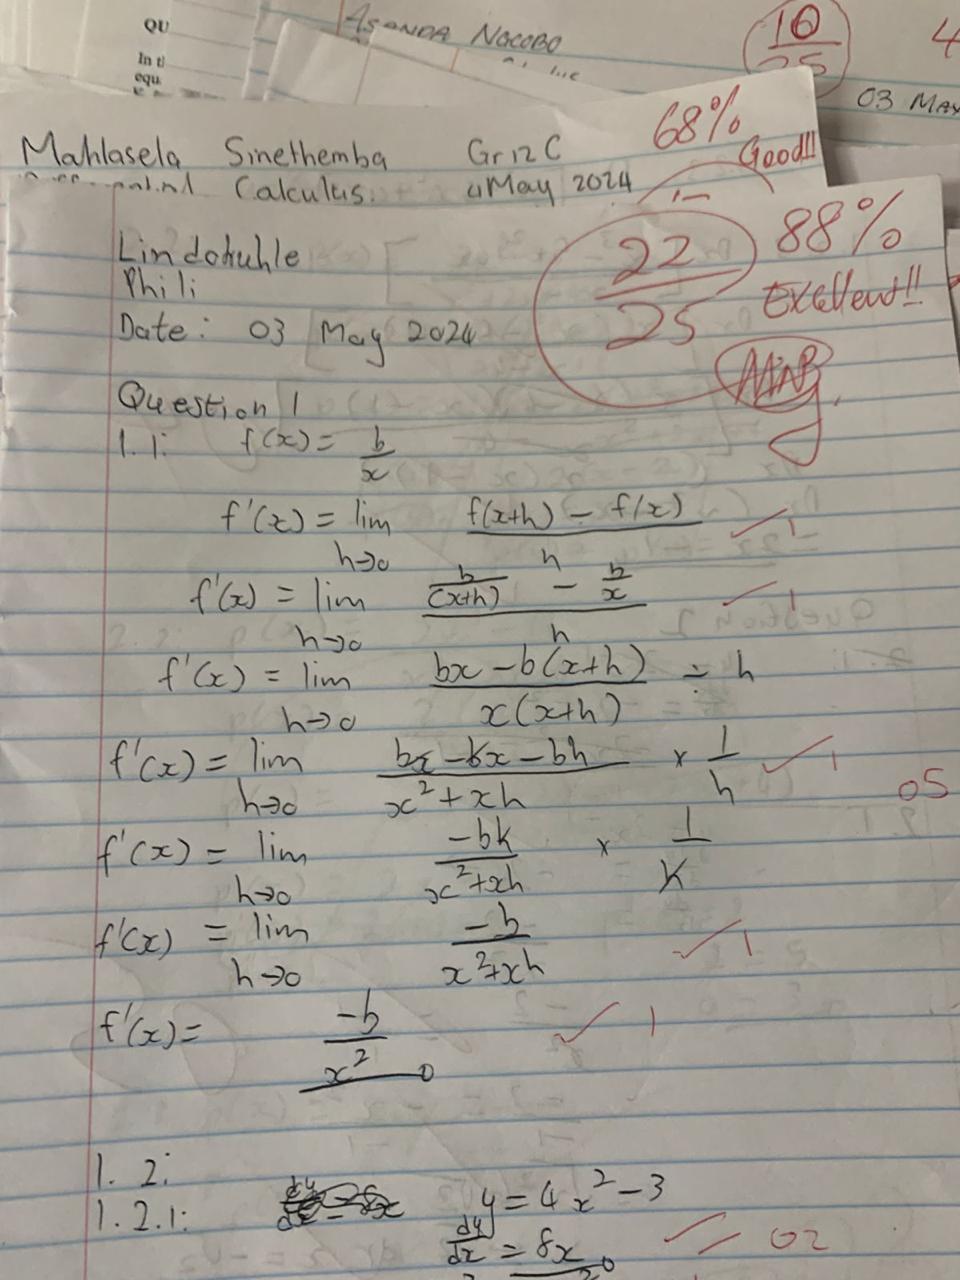 QU
In t
equ
ASANDA NOCOBO
16
25
4
03 MAY
Mahlasela Sinethemba Gr 12 C
68%
Good!!
Calculus. 4 May 2024
Lindokuhle
Phili
Date: 03 May 2024
22
25
88%
Excellent!!
Question 1
1.1: f(x) = b/x
f'(x) = lim h→0 (f(x+h) - f(x))/h ✓1
f'(x) = lim h→0 (b/(x+h) - b/x)/h ✓1
f'(x) = lim h→0 (bx - b(x+h))/(x(x+h)) ÷ h
f'(x) = lim h→0 (bx - bx - bh)/(x²+xh) × 1/h ✓1
05
f'(x) = lim h→0 -bh/(x²+xh) × 1/h
f'(x) = lim h→0 -b/(x²+xh) ✓1
f'(x) = -b/x² ✓1
1.2:
1.2.1: y = 4x² - 3
dy/dx = 8x ✓✓ 02